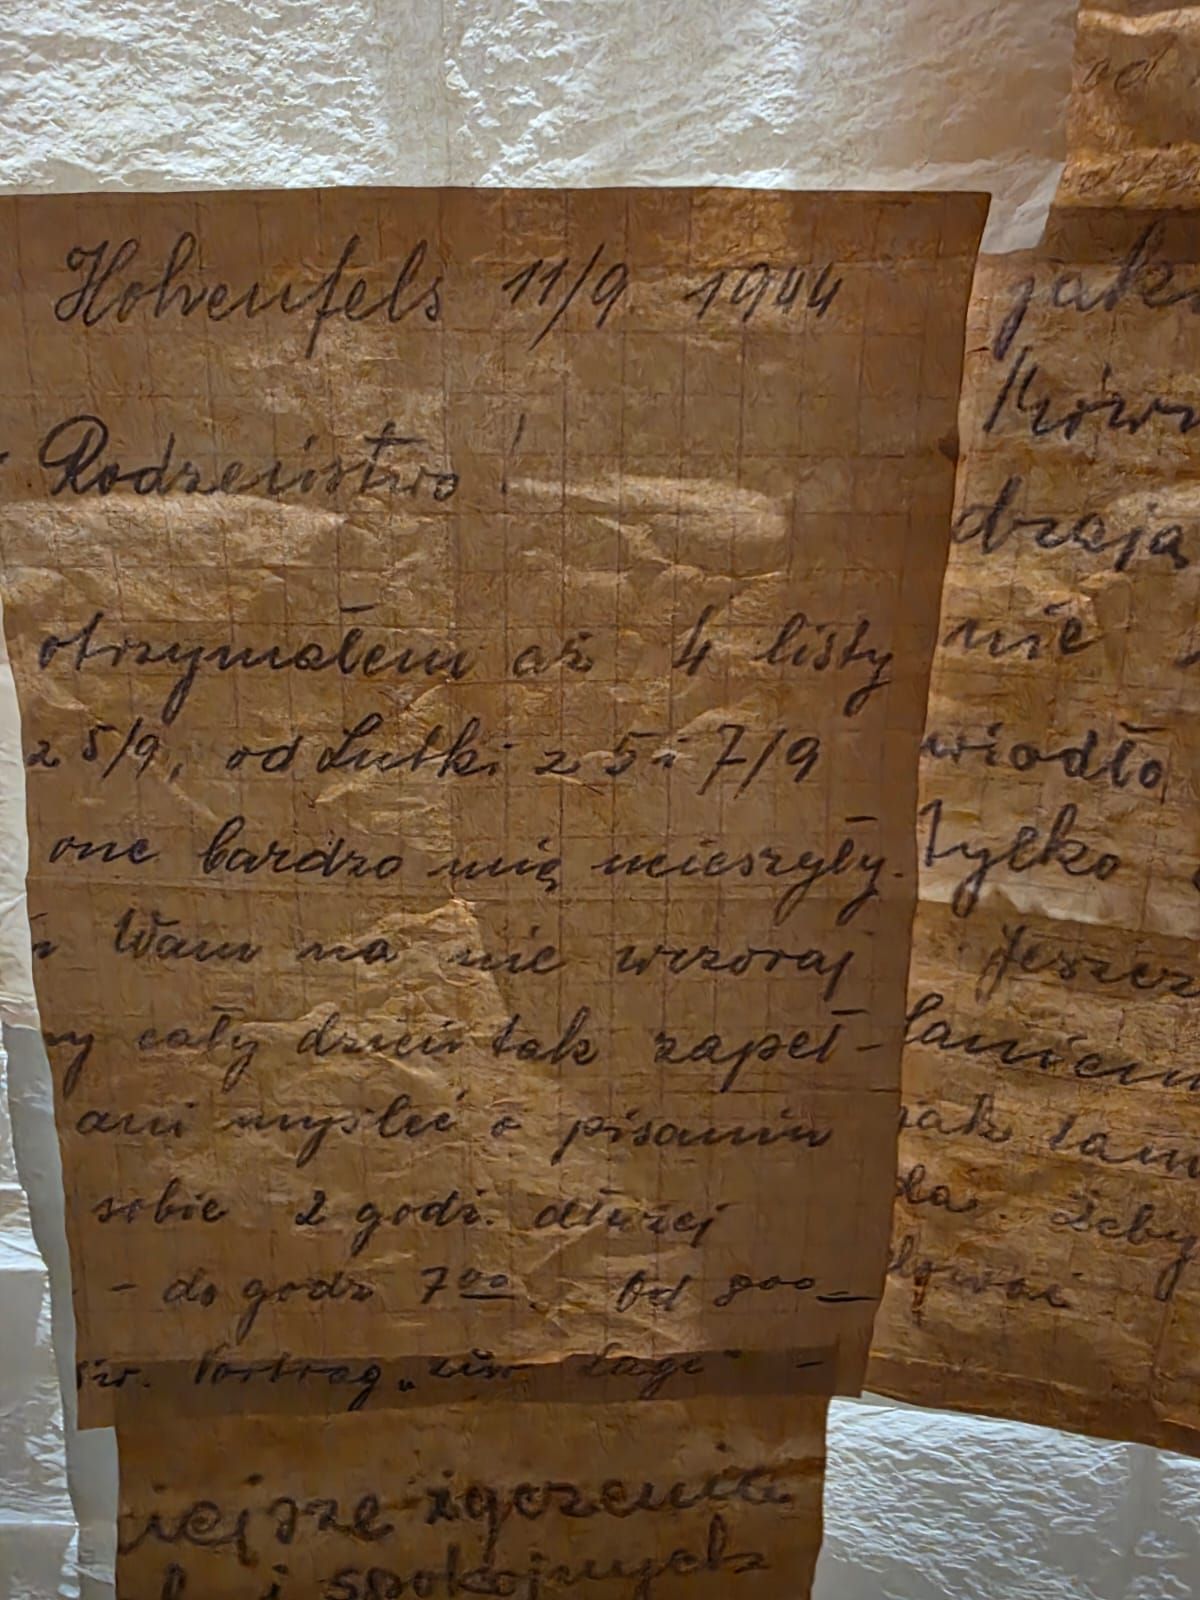 Hohenfels 11/9 1944
Rodzeństwo!
otrzymałem aż 4 listy
z 5/9, od Lutki z 5 i 7/9
one bardzo mię ucieszyły.
Wam na nie wczoraj
ny cały dzień tak zapeł-
ani myśleć o pisaniu
sobie 2 godz. dłużej
- do godz 7⁰⁰. Od 8⁰⁰ -
Vortrag „zur Lage" -
iejsze życzenia
i spokojnych
od
jak
Równ
dzają
nie
wiodło
Tylko
Jeszcz
łaniem
jak tam
da. Żeby